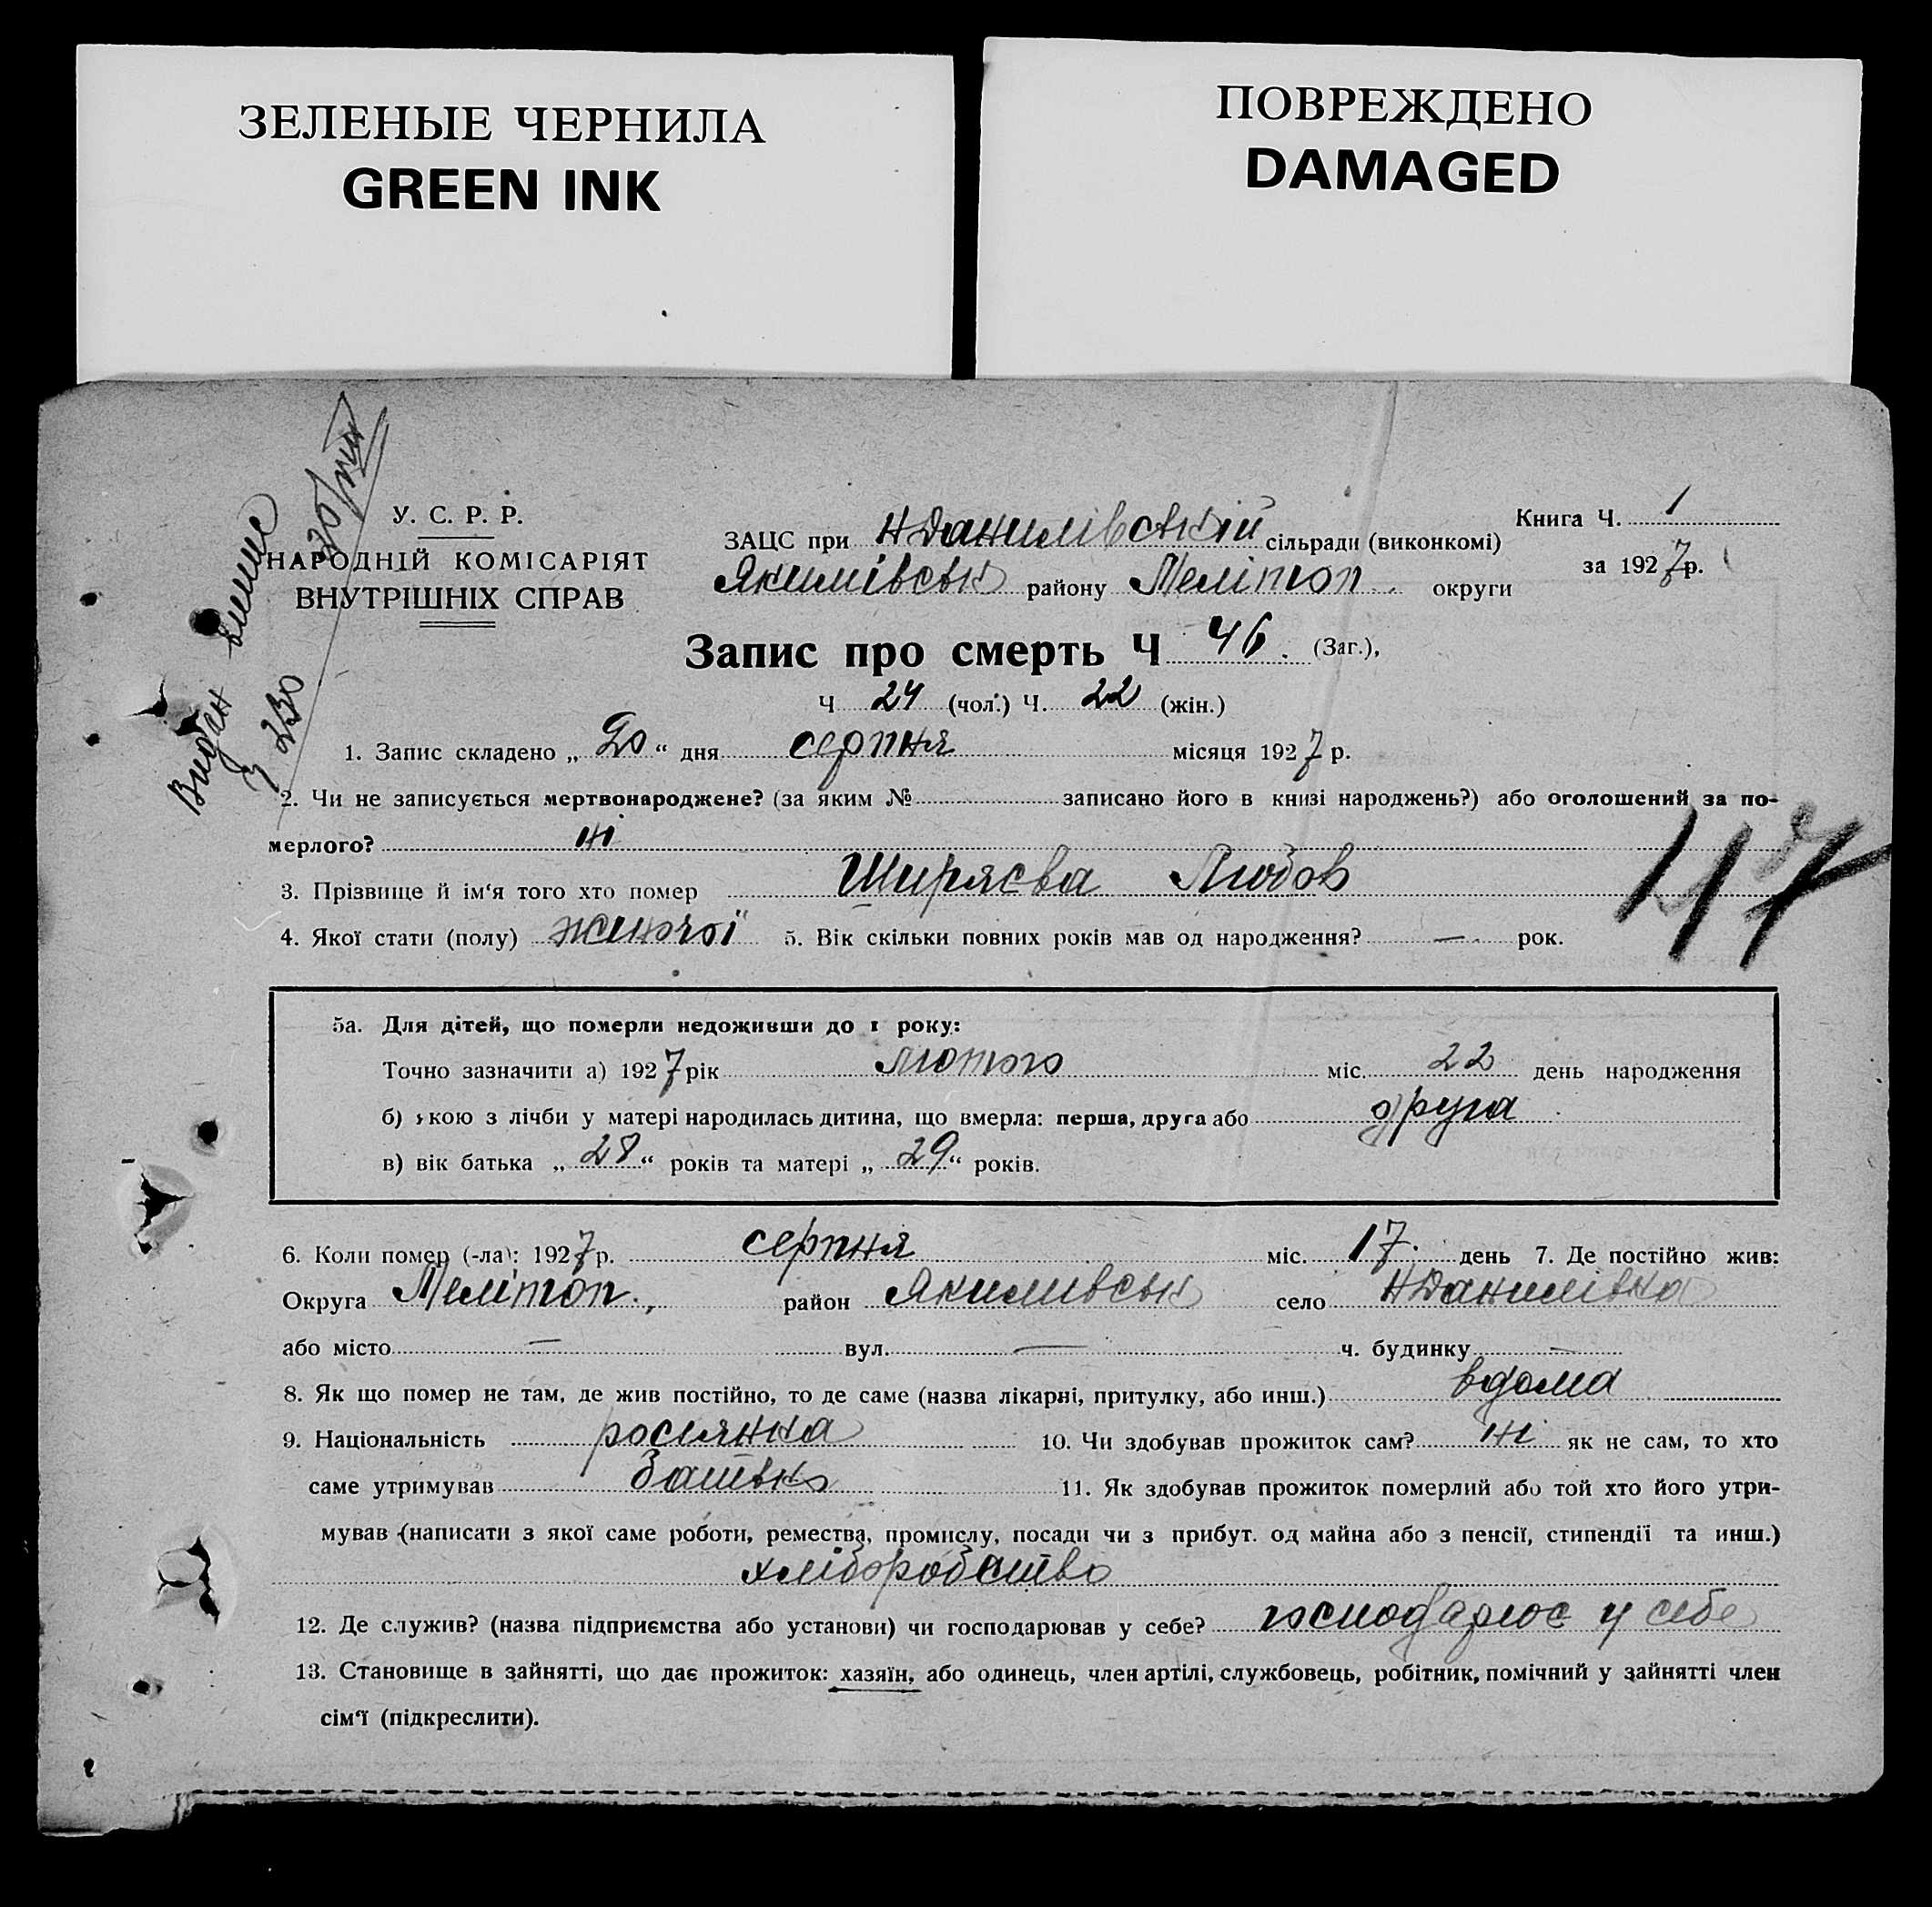 ЗЕЛЕНЫЕ ЧЕРНИЛА
GREEN INK
ПОВРЕЖДЕНО
DAMAGED
У. С. Р. Р.
НАРОДНІЙ КОМІСАРІЯТ
ВНУТРІШНІХ СПРАВ
ЗАЦС при НДанилівській сільради (виконкомі)
Якимівськ району Мелітоп. округи
Книга Ч. 1
за 1927 р.
Запис про смерть Ч 46. (Заг.),
Ч 24 (чол.) Ч. 22 (жін.)
1. Запис складено „ 20 “ дня серпня місяця 1927 р.
2. Чи не записується мертвонароджене? (за яким № записано його в книзі народжень?) або оголошений за по-
мерлого? ні
3. Прізвище й ім‘я того хто помер Ширяєва Любов
117
4. Якої стати (полу) жиночої 5. Вік скільки повних років мав од народження? — рок.
5а. Для дітей, що померли недоживши до 1 року:
Точно зазначити а) 1927 рік лютого міс. 22 день народження
б) якою з лічби у матері народилась дитина, що вмерла: перша, друга або друга
в) вік батька „ 28 “ років та матері „ 29 “ років.
6. Коли помер (-ла): 1927 р. серпня міс. 17. день 7. Де постійно жив:
Округа Мелітоп. район Якимивськ село НДанилівка
або місто — вул. — ч. будинку —
8. Як що помер не там, де жив постійно, то де саме (назва лікарні, притулку, або инш.) вдома
9. Національність росиянка 10. Чи здобував прожиток сам? ні як не сам, то хто
саме утримував батько 11. Як здобував прожиток померлий або той хто його утри-
мував (написати з якої саме роботи, ремества, промислу, посади чи з прибут. од майна або з пенсії, стипендії та инш.)
хліборобство
12. Де служив? (назва підприємства або установи) чи господарював у себе? господарює у себе
13. Становище в зайнятті, що дає прожиток: хазяїн, або одинець, член артілі, службовець, робітник, помічний у зайнятті член
сім‘ї (підкреслити).